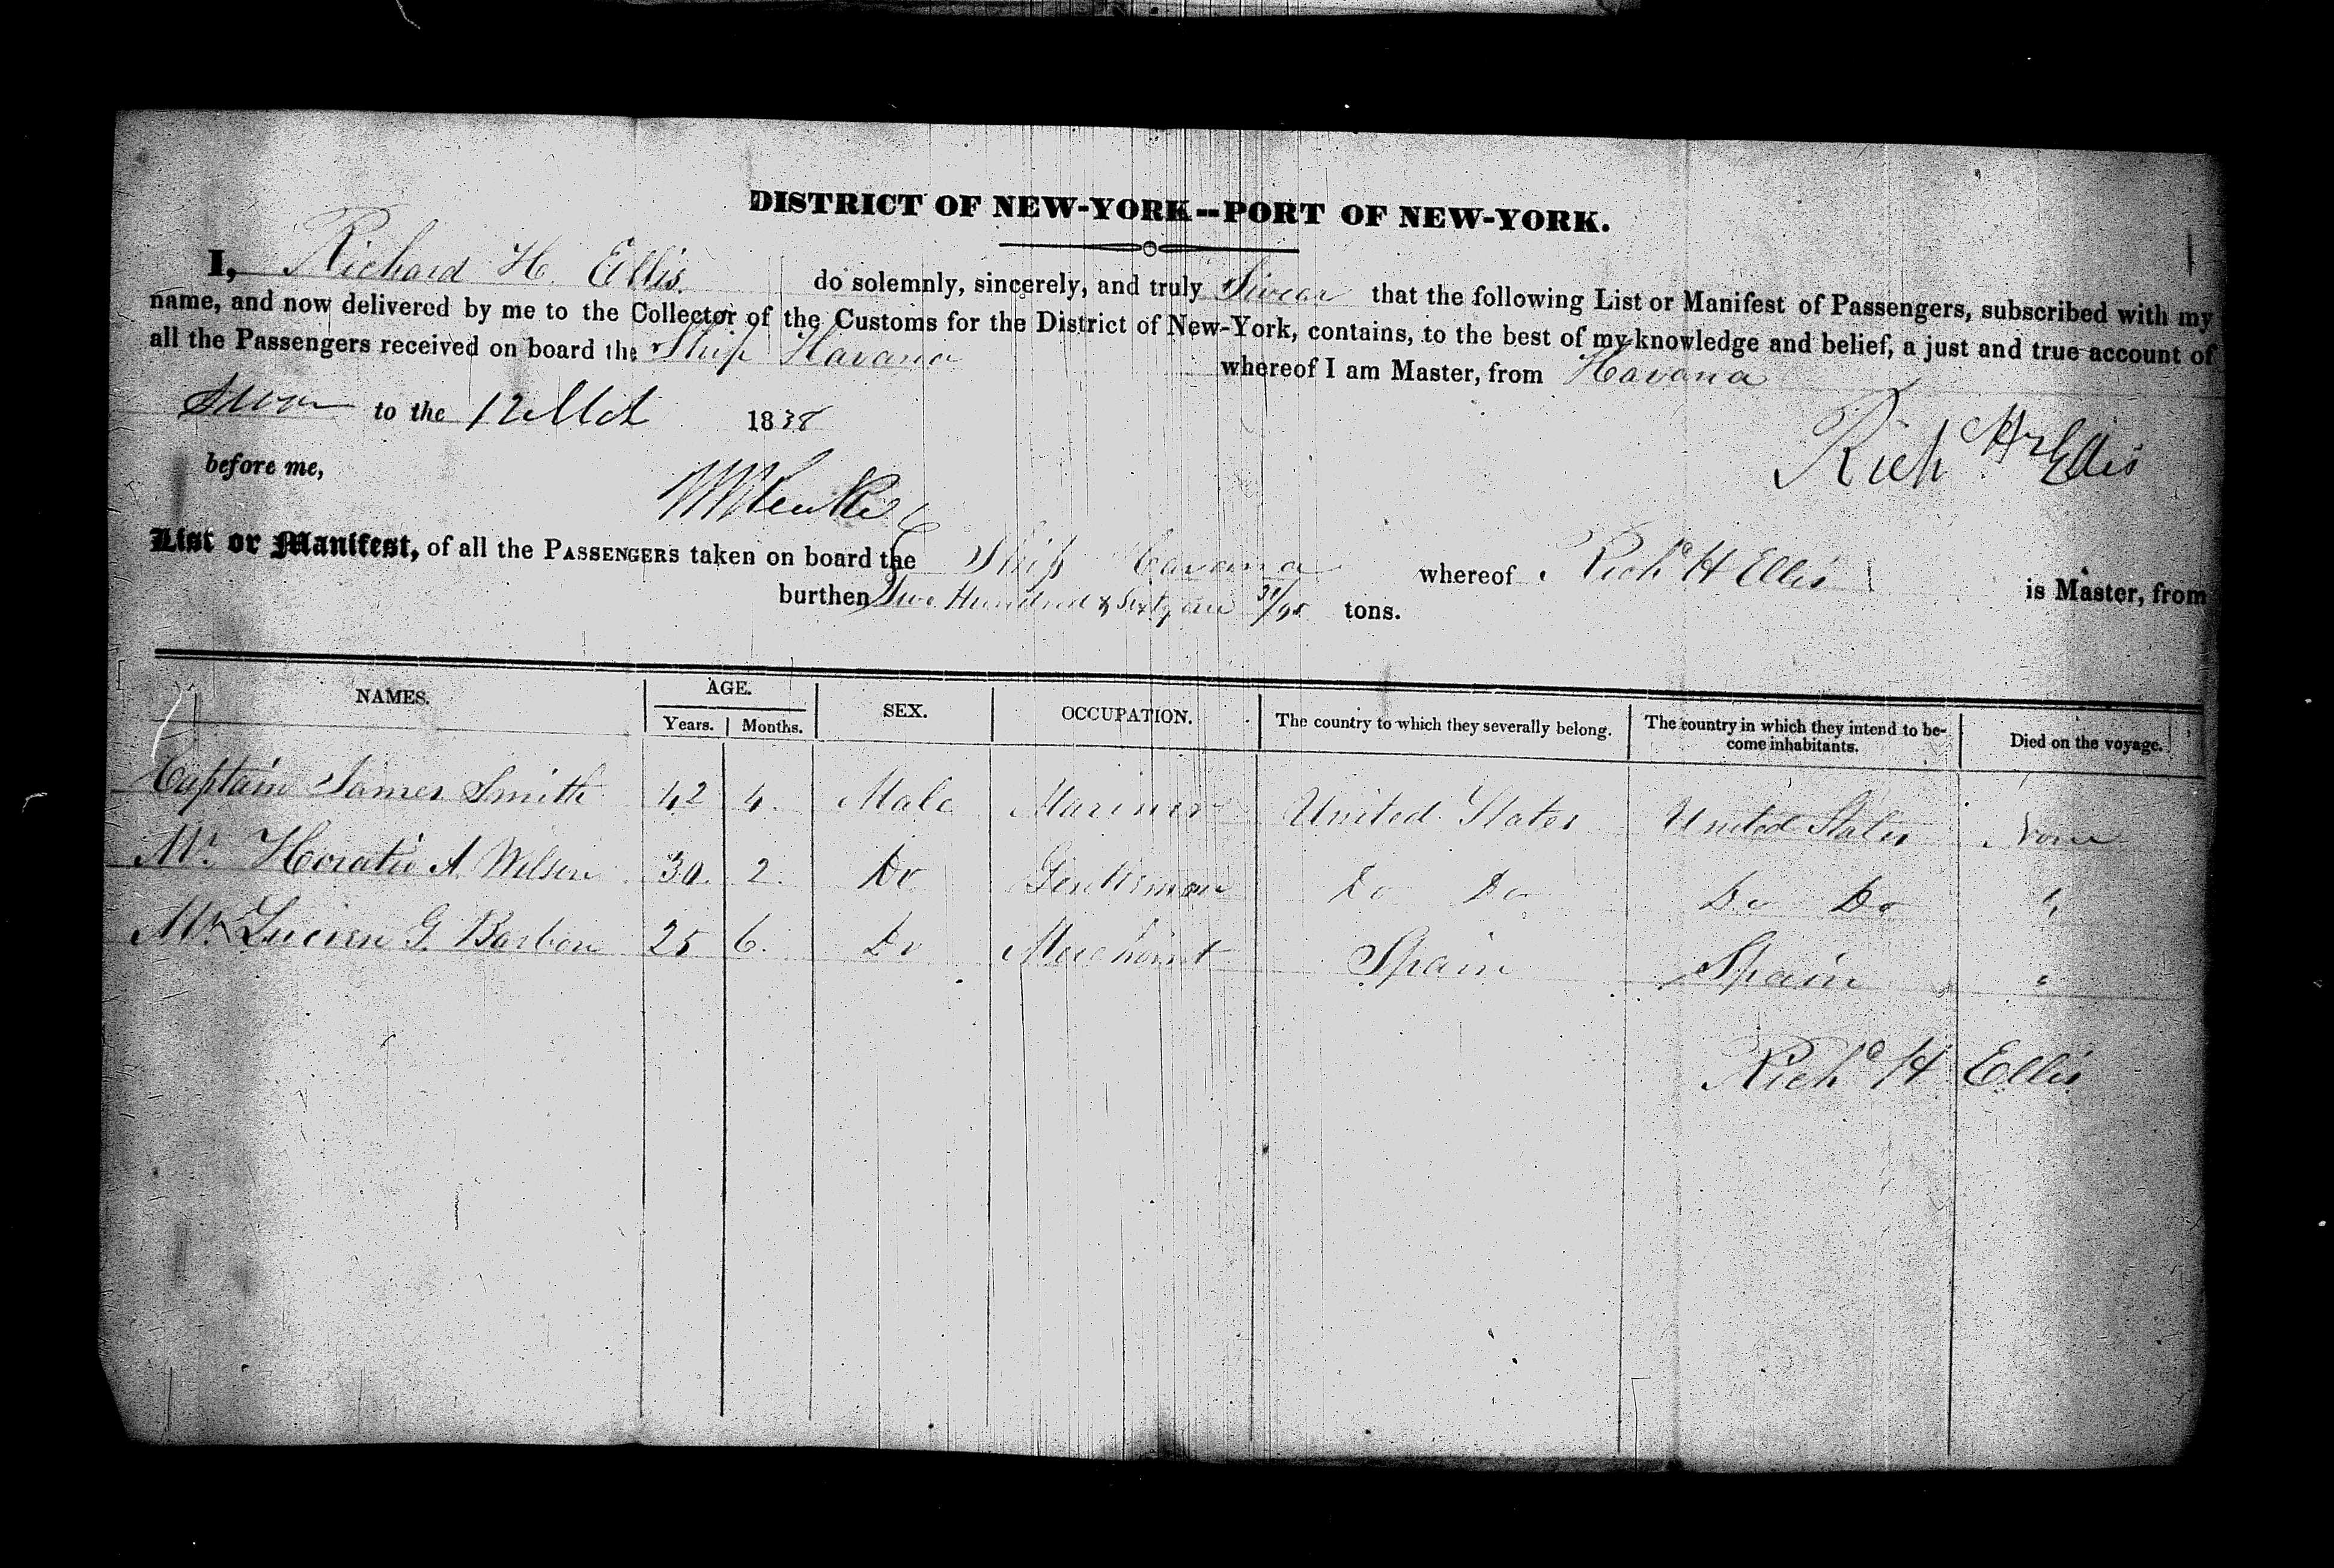 DISTRICT OF NEW-YORK--PORT OF NEW-YORK.
I, Richard H. Ellis. do solemnly, sincerely, and truly Swear that the following List or Manifest of Passengers, subscribed with my
name, and now delivered by me to the Collector of the Customs for the District of New-York, contains, to the best of my knowledge and belief, a just and true account of
all the Passengers received on board the Ship Havana whereof I am Master, from Havana
Sworn to the 12 Mch 1838
before me,
Richd H Ellis
List or Manifest, of all the PASSENGERS taken on board the Ship Havana whereof Richd H Ellis is Master, from
burthen Hundred & Sixty one 31/95 tons.
NAMES. AGE. SEX. OCCUPATION. The country to which they severally belong. The country in which they intend to be-
come inhabitants. Died on the voyage.
Years. Months.
Captain James Smith 42 4. Male Mariner United States United States None
Mr. Horatio A. Wilson 30. 2. Do Gentleman Do Do Do Do "
Mr. Lucien G. Barbon 25 6. Do Merchant Spain Spain "
Richd H Ellis